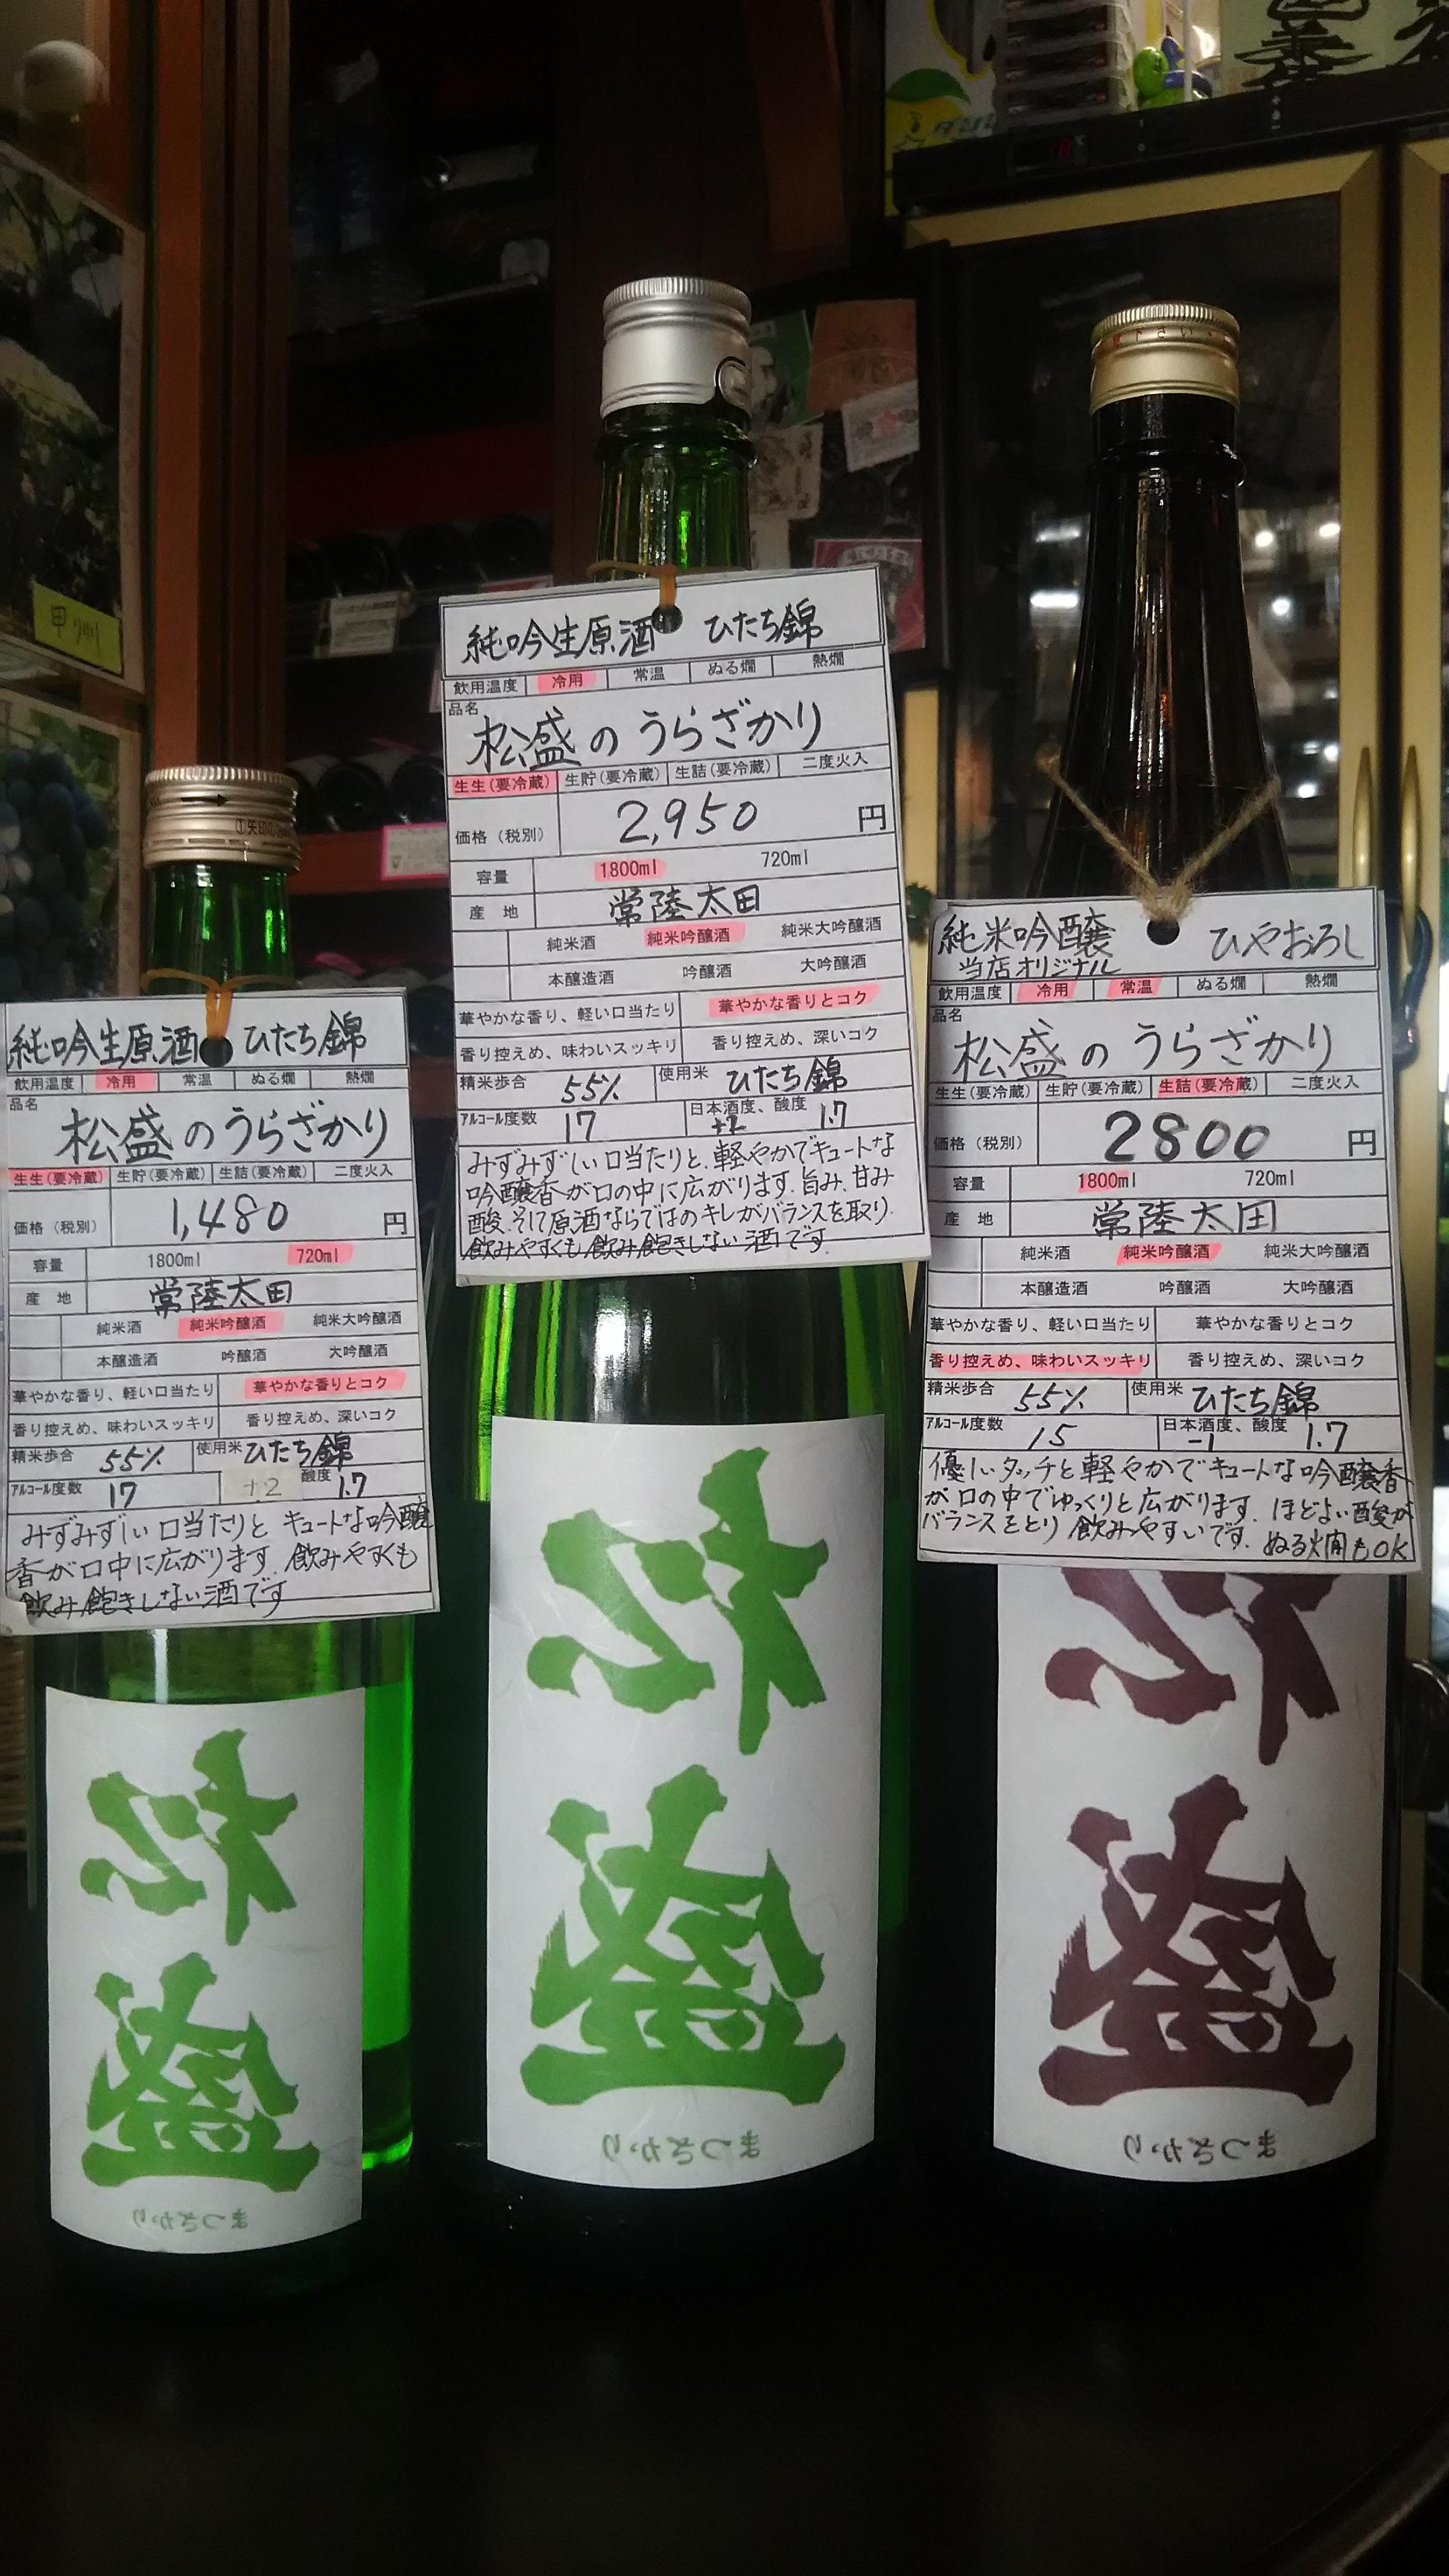 純吟生原酒 ひたち錦
飲用温度 冷用 常温 ぬる燗 熱燗
品名
松盛のうらざかり
生生(要冷蔵) 生貯(要冷蔵) 生詰(要冷蔵) 二度火入
価格(税別) 1,480 円
容量 1800ml 720ml
産地 常陸太田
純米酒 純米吟醸酒 純米大吟醸酒
本醸造酒 吟醸酒 大吟醸酒
華やかな香り、軽い口当たり 華やかな香りとコク
香り控えめ、味わいスッキリ 香り控えめ、深いコク
精米歩合 55% 使用米 ひたち錦
アルコール度数 17 +2 酸度 1.7
みずみずしい口当たりと キュートな吟醸
香が口中に広がります。飲みやすくも
飲み飽きしない酒です
松盛
まつざかり
純吟生原酒 ひたち錦
飲用温度 冷用 常温 ぬる燗 熱燗
品名
松盛のうらざかり
生生(要冷蔵) 生貯(要冷蔵) 生詰(要冷蔵) 二度火入
価格(税別) 2,950 円
容量 1800ml 720ml
産地 常陸太田
純米酒 純米吟醸酒 純米大吟醸酒
本醸造酒 吟醸酒 大吟醸酒
華やかな香り、軽い口当たり 華やかな香りとコク
香り控えめ、味わいスッキリ 香り控えめ、深いコク
精米歩合 55% 使用米 ひたち錦
アルコール度数 17 日本酒度、酸度 +2 1.7
みずみずしい口当たりと、軽やかでキュートな
吟醸香が口の中に広がります。旨み、甘み
酸、そして原酒ならではのキレがバランスを取り、
飲みやすくも飲み飽きしない酒です。
松盛
まつざかり
純米吟醸 ひやおろし
当店オリジナル
飲用温度 冷用 常温 ぬる燗 熱燗
品名
松盛のうらざかり
生生(要冷蔵) 生貯(要冷蔵) 生詰(要冷蔵) 二度火入
価格(税別) 2800 円
容量 1800ml 720ml
産地 常陸太田
純米酒 純米吟醸酒 純米大吟醸酒
本醸造酒 吟醸酒 大吟醸酒
華やかな香り、軽い口当たり 華やかな香りとコク
香り控えめ、味わいスッキリ 香り控えめ、深いコク
精米歩合 55% 使用米 ひたち錦
アルコール度数 15 日本酒度、酸度 -1 1.7
優しいタッチと軽やかでキュートな吟醸香
が口の中でゆっくりと広がります。ほどよい酸が
バランスをとり 飲みやすいです。ぬる燗もOK
松盛
まつざかり
甲州